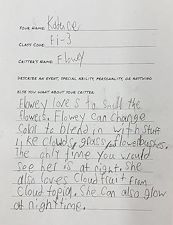 YOUR NAME: Kadence
CLASS CODE: Fi-3
CRITTER'S NAME: Flowey
DESCRIBE AN EVENT, SPECIAL ABILITY, PERSONALITY, OR ANYTHING
ELSE YOU WANT ABOUT YOUR CRITTER:
Flowey loves to smell the
flowers. Flowey can change
color to blend in with stuff
like clouds, grass, flower bushes.
The only time you would
see her is at night. She
also loves Cloud fruit from
Cloud topia. She can also glow
at nighttime.